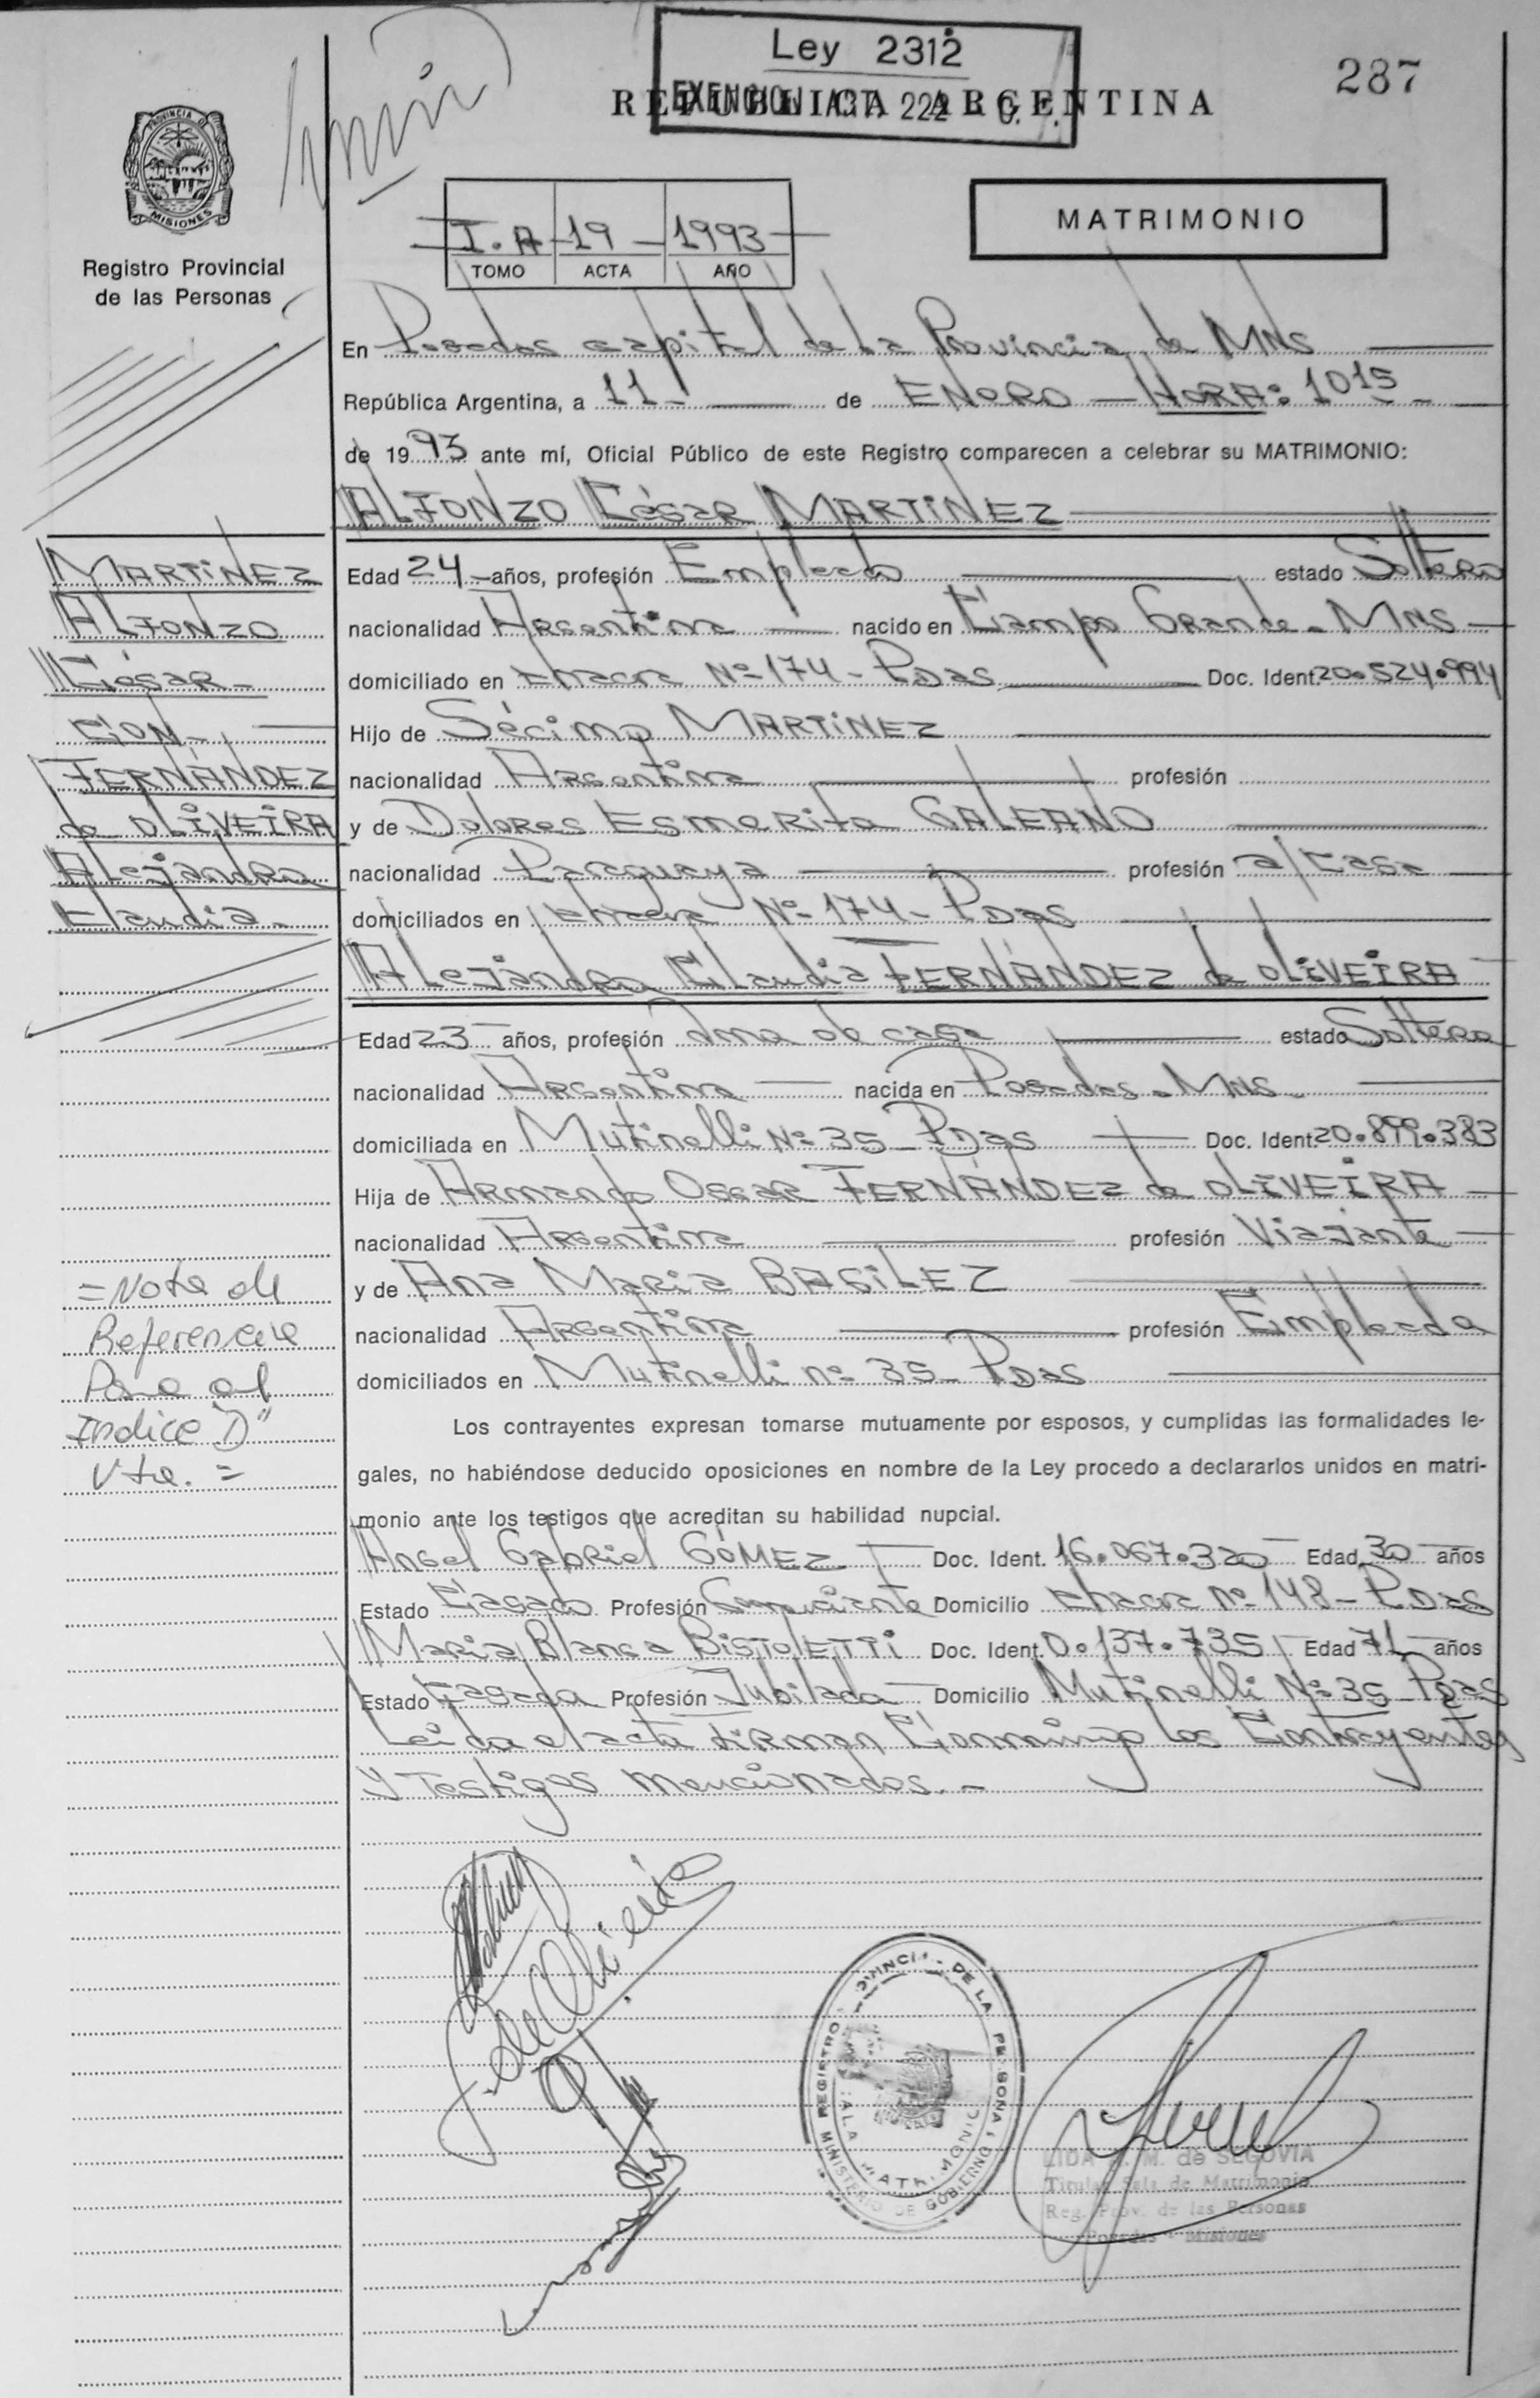 Ley 2312
EXENCION ACT. 222
287
REPUBLICA ARGENTINA
PROVINCIA D
MISIONES
Registro Provincial
de las Personas
I.A - 19 - 1993
TOMO ACTA AÑO
MATRIMONIO
En Posadas capital de la Provincia de Mns
República Argentina, a 11.- de ENERO - HORA: 1015 -
de 1993 ante mí, Oficial Público de este Registro comparecen a celebrar su MATRIMONIO:
ALFONZO César MARTINEZ
MARTINEZ
ALFONZO
César -
CON -
FERNÁNDEZ
de OLIVEIRA
Alejandra
Claudia -
Edad 24 - años, profesión Empleado estado Soltero
nacionalidad Argentina nacido en Campo Grande - Mns -
domiciliado en Chacra Nº 174 - Pdas Doc. Ident. 20.524.994
Hijo de Sécimo MARTINEZ
nacionalidad Argentina profesión
y de Dolores Esmerita GALEANO
nacionalidad Paraguaya profesión a/casa
domiciliados en Chacra Nº 174 - Pdas
Alejandra Claudia FERNÁNDEZ de OLIVEIRA
Edad 23 años, profesión Ama de casa estado Soltera
nacionalidad Argentina nacida en Posadas - Mns
domiciliada en Mutinelli Nº 35 - Pdas Doc. Ident. 20.899.383
Hija de Armando Oscar FERNÁNDEZ de OLIVEIRA
nacionalidad Argentina profesión Viajante
y de Ana Maria BAGILEZ
nacionalidad Argentina profesión Empleada
domiciliados en Mutinelli nº 35 Pdas
= Nota de
Referencia
Para el
Indice "D"
Vta. =
Los contrayentes expresan tomarse mutuamente por esposos, y cumplidas las formalidades le-
gales, no habiéndose deducido oposiciones en nombre de la Ley procedo a declararlos unidos en matri-
monio ante los testigos que acreditan su habilidad nupcial.
Angel Gabriel GÓMEZ Doc. Ident. 16.067.320 Edad 30 años
Estado Casado Profesión Comerciante Domicilio Chacra Nº 148 - Pdas
Maria Blanca BISTOLETTI Doc. Ident. 0.137.735 Edad 71 años
Estado Casada Profesión Jubilada Domicilio Mutinelli Nº 35 - Pdas
Leida el acta firman Conmigo los Contrayentes
y Testigos mencionados. -
F. de Oliveira
REGISTRO PROVINCIAL DE LAS PERSONAS
MINISTERIO DE GOBIERNO
SALA MATRIMONIO
LIDA M. de SEGOVIA
Titular Sala de Matrimonio
Reg. Prov. de las Personas
Posadas - Misiones